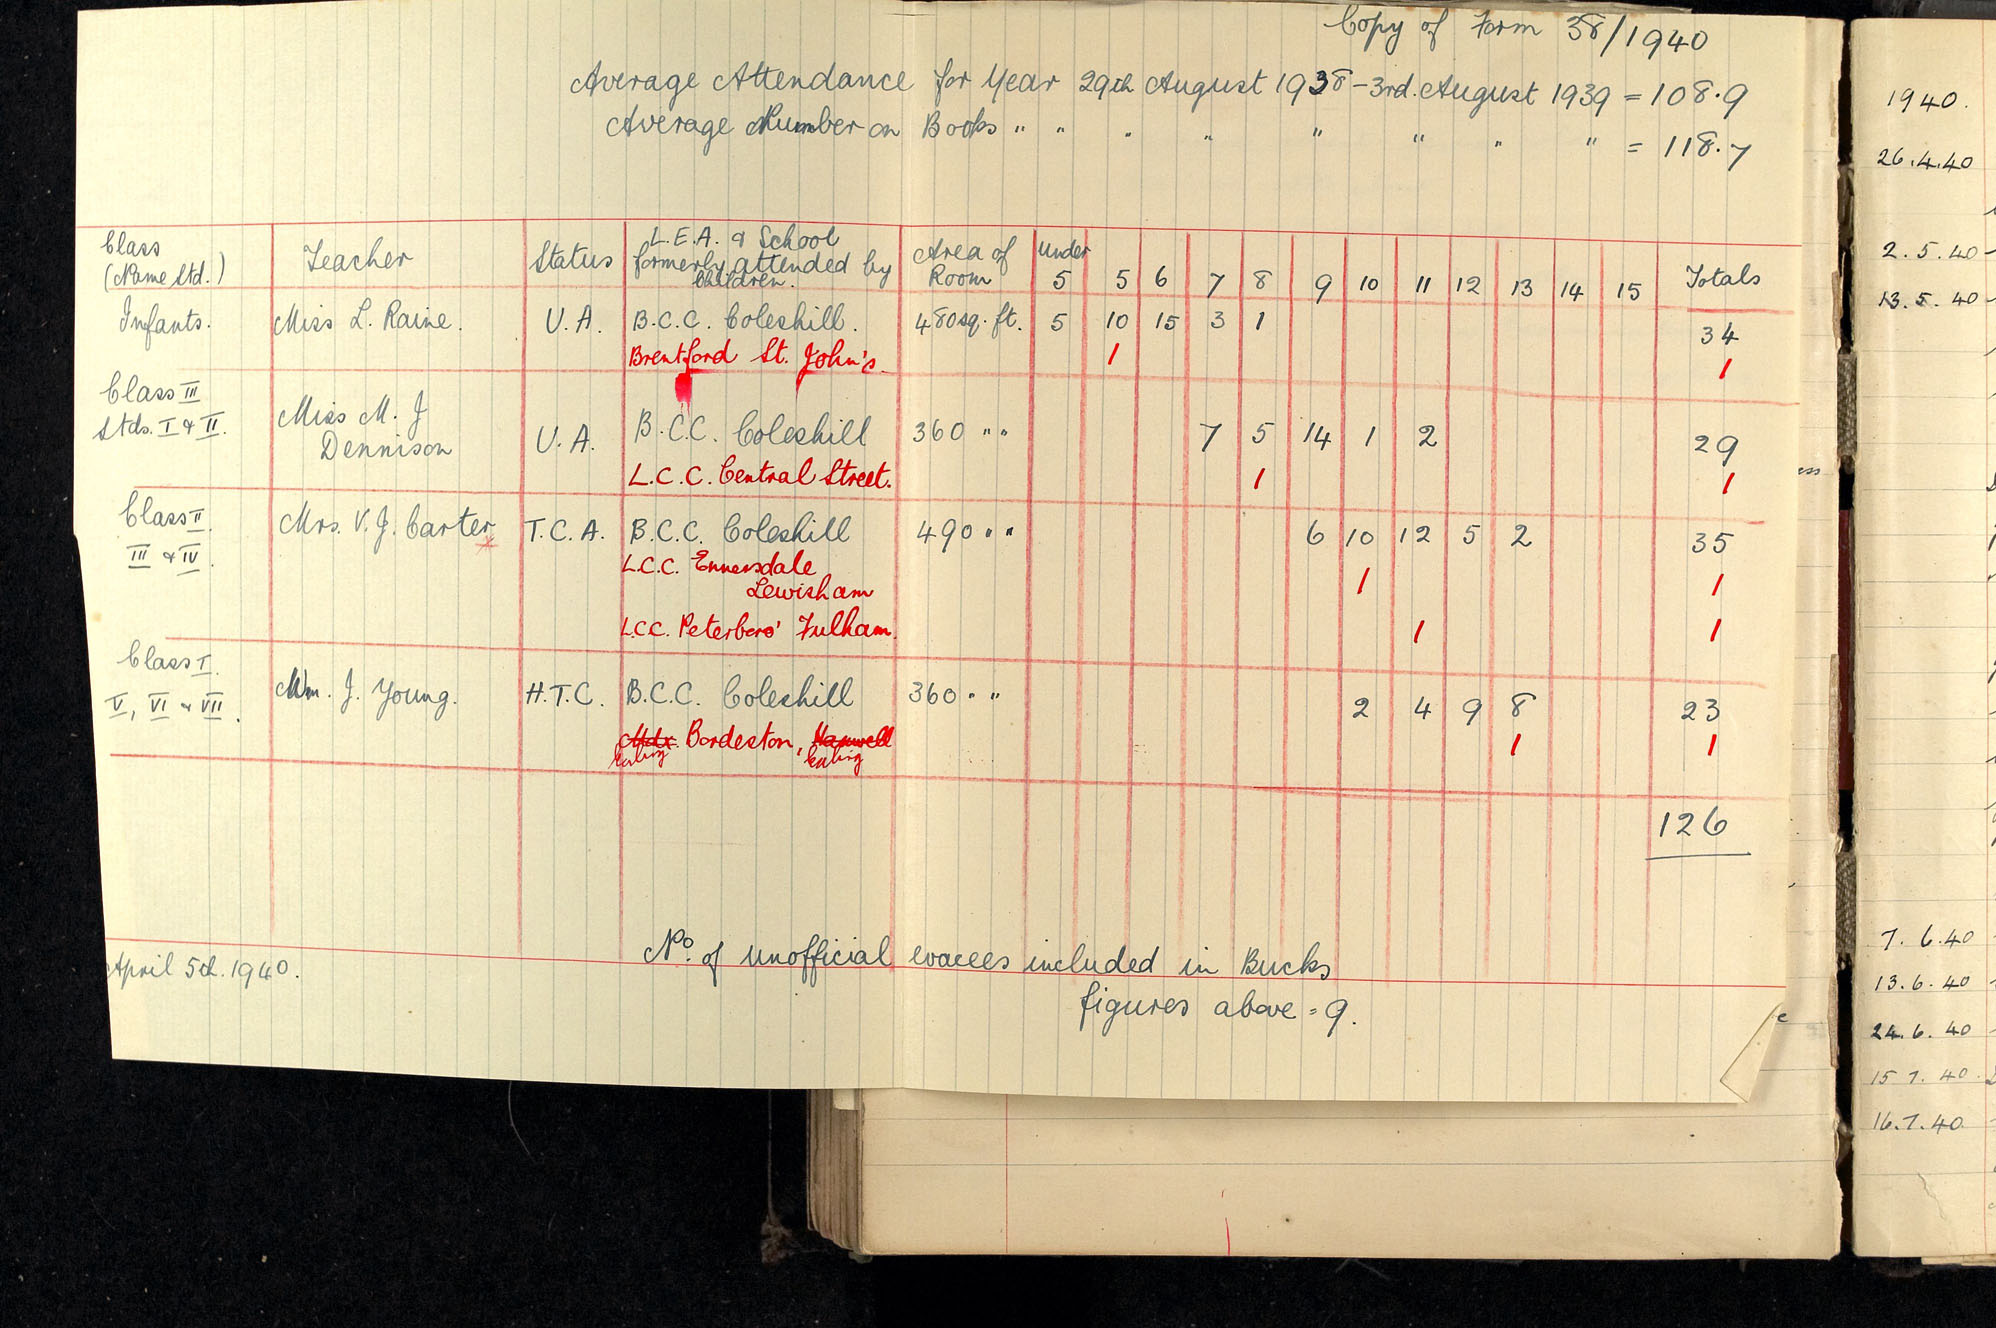 Copy of Form 38/1940
Average Attendance for Year 29th August 1938 - 3rd. August 1939 = 108.9
Average Number on Books " " " " " " " " = 118.7
Class (Name Std.) Teacher Status L.E.A. & School formerly attended by children. Area of Room Under 5 5 6 7 8 9 10 11 12 13 14 15 Totals
Infants. Miss L. Raine. U.A. B.C.C. Coleshill. 480 sq. ft. 5 10 15 3 1 34
Brentford St. John's. 1 1
Class III
Stds. I & II. Miss M. J Dennison U.A. B.C.C. Coleshill 360 " " 7 5 14 1 2 29
L.C.C. Central Street. 1 1
Class II.
III & IV. Mrs. V. J. Carter T.C.A. B.C.C. Coleshill 490 " " 6 10 12 5 2 35
L.C.C. Ennersdale
Lewisham 1 1
L.C.C. Peterboro' Fulham. 1 1
Class I.
V, VI & VII. Wm. J. Young. H.T.C. B.C.C. Coleshill 360 " " 2 4 9 8 23
Mdx. Bordeston, Hanwell 1 1
Ealing Ealing
126
No. of unofficial evacees included in Bucks
figures above = 9.
April 5th. 1940.
1940.
26.4.40
2.5.40
13.5.40
7.6.40
13.6.40
24.6.40
15.7.40
16.7.40